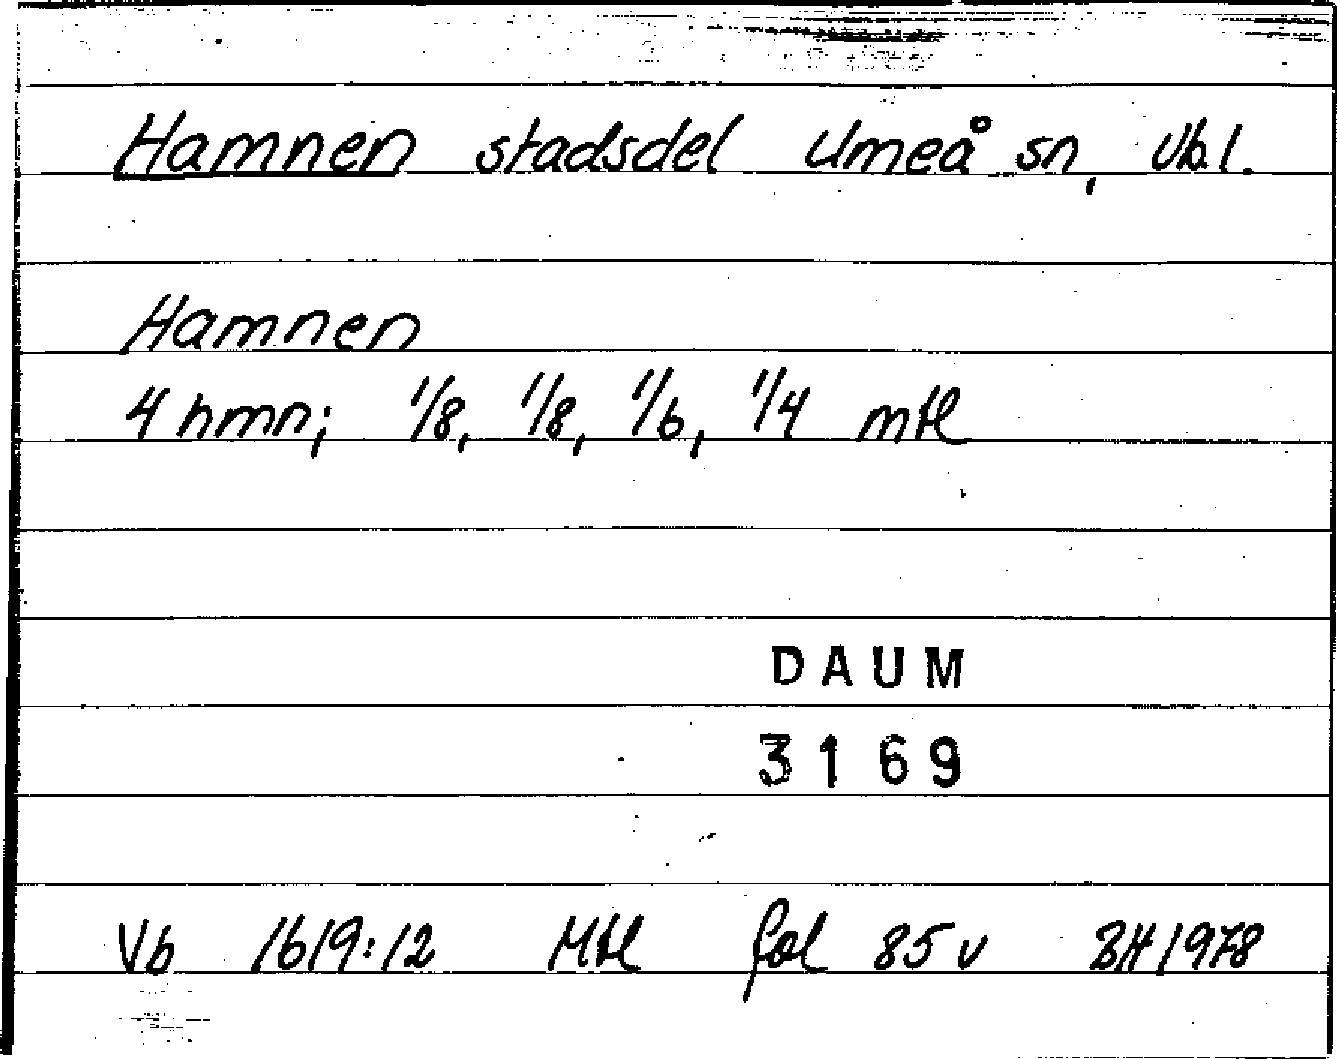 Hamnen stadsdel Umeå sn, Vb l.
Hamnen
4 hmn; 1/8, 1/8, 1/6, 1/4 mtl
DAUM
3169
Vb 1619:12 Mtl fol 85 v BH 1978